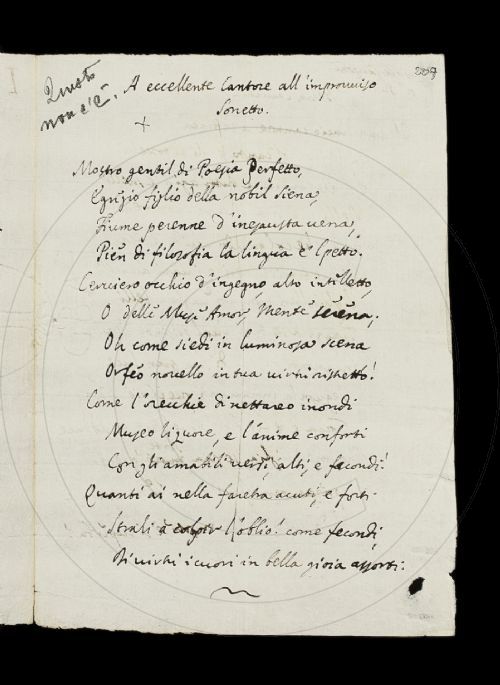 Questo
non c'è.
A eccellente Cantore all'improvviso
Sonetto.
Mostro gentil di Poesia Perfetto,
Egregio figlio della nobil Siena,
Fiume perenne d'inesausta vena,
Pien di filosofia la lingua e 'l petto.
Cerviero occhio d'ingegno, alto intelletto,
O delle Muse Amor, Mente serena,
Oh come siedi in luminosa scena
Orfeo novello in tua virtù ristretto!
Come l'orecchie di nettareo inondi
Museo liquore, e l'anime conforti
Con gli amabili versi, alti, e facondi!
Quanti ai nella faretra acuti, e forti
Strali a colpir l'oblio! come fecondi,
Di virtù i cuori in bella gioia assorti!